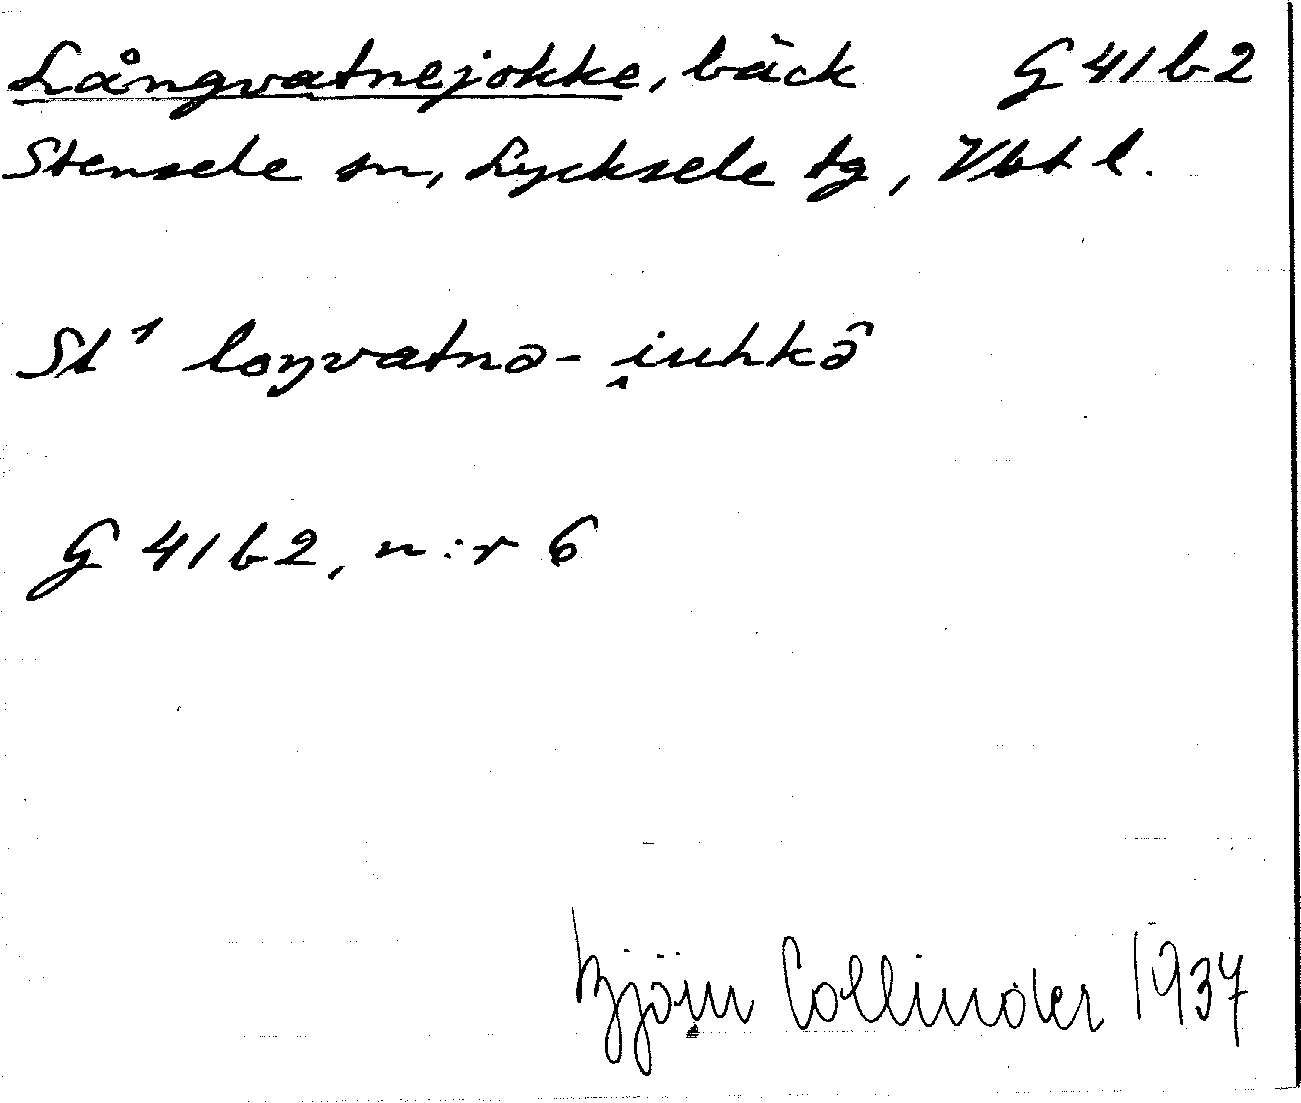 Långvatnejokke, bäck G 41 b 2
Stensele sn, Lycksele tg, Vbt l.
St¹ loŋvatnə- i̭uhkə̂
G 41 b 2, n:r 6
Björn Collinder 1937